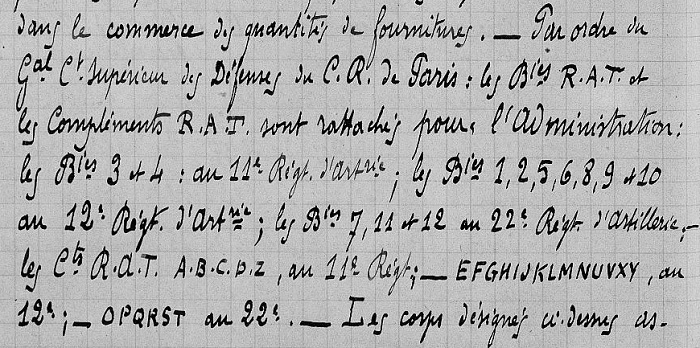 dans le commerce des quantités de fournitures. — Par ordre du
Gal Ct Supérieur des Défenses du C.R. de Paris : les Bies R.A.T. et
les Compléments R.A.T. sont rattachés pour l'Administration :
les Bies 3 et 4 : au 11e Régt. d'Artrie ; les Bies 1, 2, 5, 6, 8, 9 et 10
au 12e Régt. d'Artrie ; les Bies 7, 11 et 12 au 22e Régt d'artillerie ; —
les Cts R.A.T. A.B.C.D.Z , au 11e Régt ; — EFGHIJKLMNUVXY , au
12e ; — OPQRST au 22e . — Les corps désignés ci-dessus as-